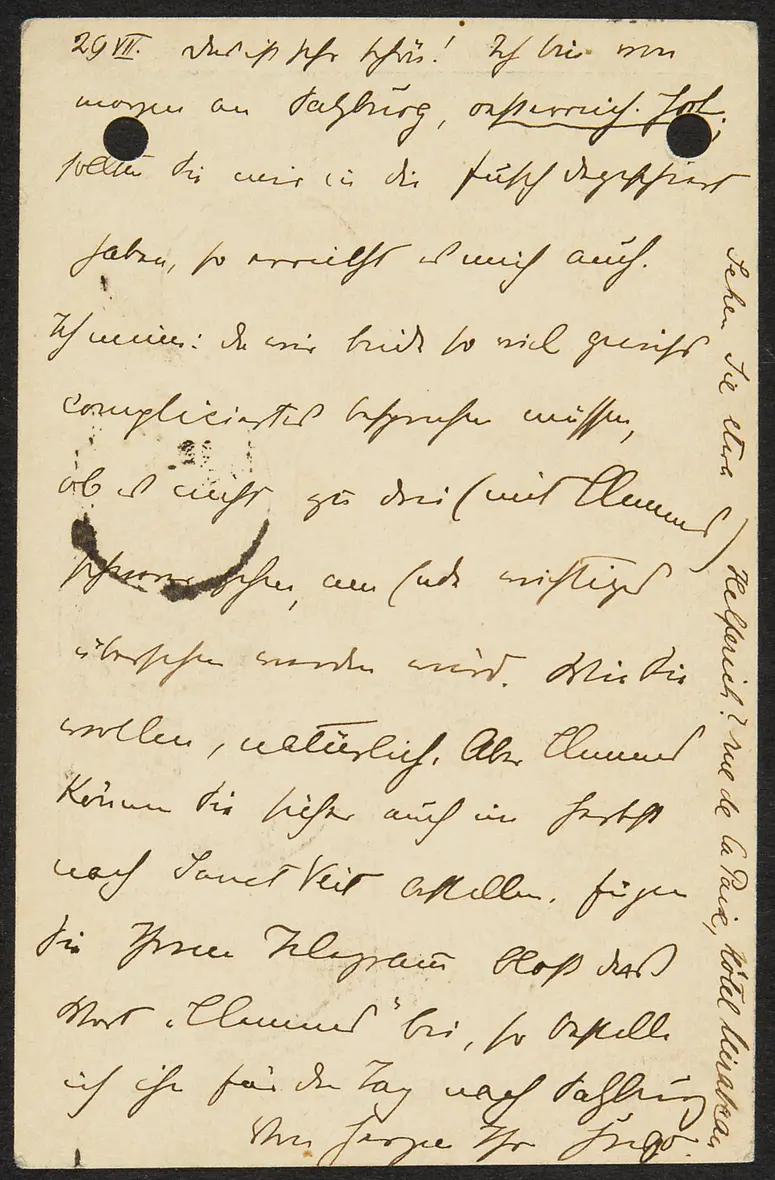 29 VII. Das ist sehr schön! Ich bin von
morgen an Salzburg, österreich. Hof.
sollten Sie mir in die Fusch depeschiert
haben, so erreicht es mich auch.
Ich meine: da wir beide so viel
compliciertes besprechen müssen,
ob es nicht zu drei (mit Clemens)
schwer gehen, am Ende wichtiges
übersehen werden wird. Wie Sie
wollen, natürlich. Aber Clemens
können Sie sicher auch im Herbst
nach Sanct Veit bestellen. Fügen
Sie Ihrem Telegramm bloß das
Wort „Clemens“ bei, so bestelle
ich ihn für den Tag nach Salzburg
Von Herzen Ihr Hugo.
Sehen Sie etwa Helferich? rue de la Paix, Hôtel Mirabeau